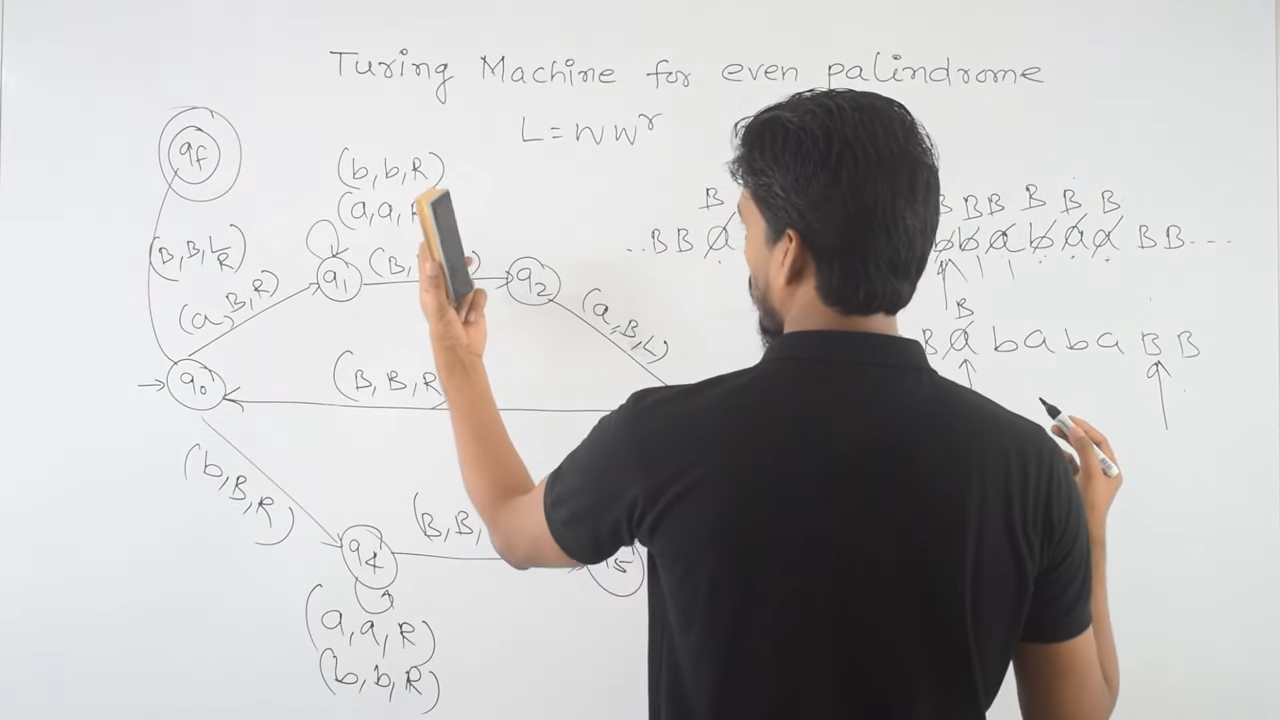 Turing Machine for even palindrome
L = w w^r
qf
(b, b, R)
(a, a,
(B, B, L/R)
(a, B, R)
q1
(B,
q2
(a, B, L)
q0
(B, B, R
(b, B, R)
q4
(B, B,
5
(a, a, R)
(b, b, R)
B
..BB a
B B B B B B
b b a b a a BB---
B
B a b a b a B B